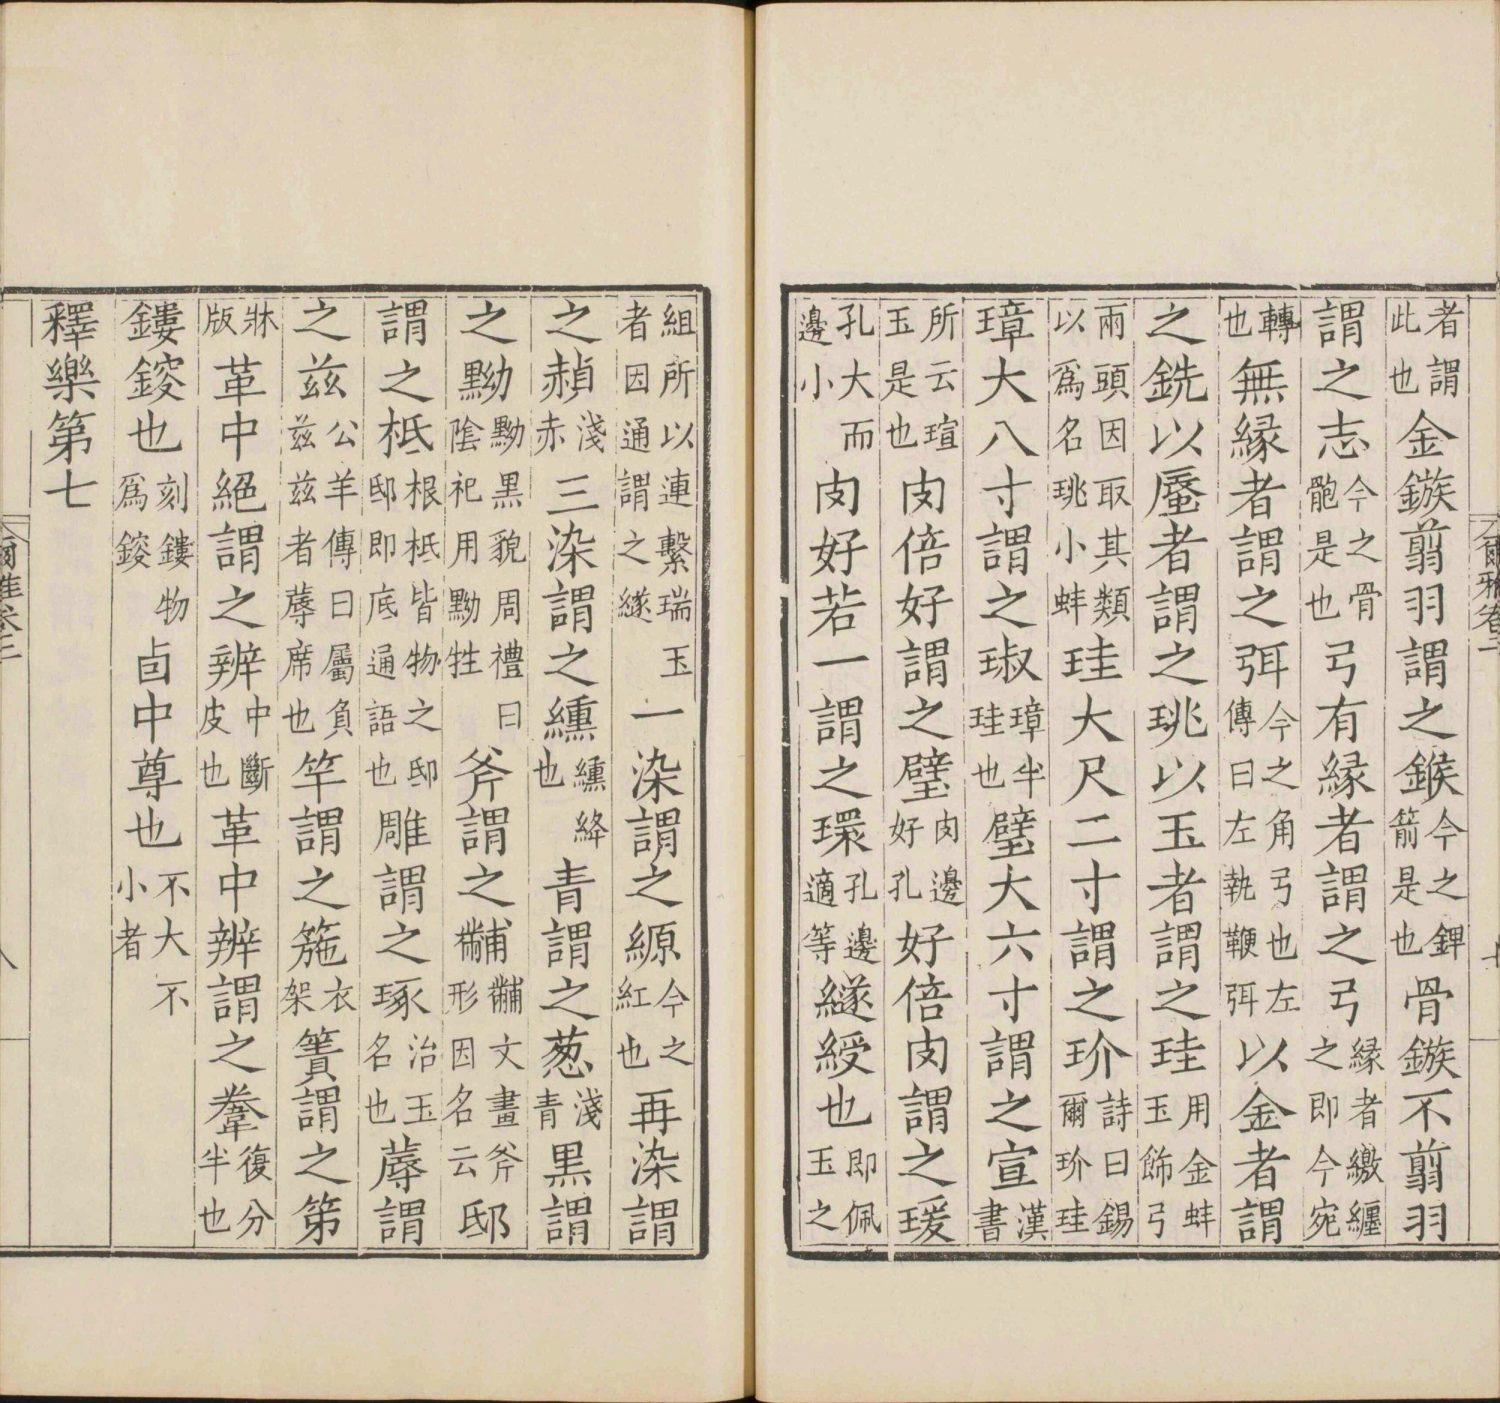 者謂此也金鏃翦羽謂之鍭今之錍箭是也骨鏃不翦羽
謂之志今之骨骲是也弓有緣者謂之弓緣者繳纏之即今宛
轉也無緣者謂之弭今之角弓也左傳曰左執鞭弭以金者謂
之銑以蜃者謂之珧以玉者謂之珪用金蚌玉飾弓
兩頭因取其類以爲名珧小蚌珪大尺二寸謂之玠詩曰錫爾玠珪
璋大八寸謂之琡璋半珪也璧大六寸謂之宣漢書
所云瑄玉是也肉倍好謂之璧肉邊好孔好倍肉謂之瑗
孔大而邊小肉好若一謂之環孔邊適等繸綬也即佩玉之
組所以連繫瑞玉者因通謂之繸一染謂之縓今之紅也再染謂
之赬淺赤三染謂之纁纁絳也青謂之葱淺青黑謂
之黝黝黑貌周禮曰陰祀用黝牲斧謂之黼黼文畫斧形因名云邸
謂之柢根柢皆物之邸邸即底通語也雕謂之琢治玉名也蓐謂
之茲公羊傳曰屬負茲茲者蓐席也竿謂之箷衣架簀謂之第
牀版革中絕謂之辨中斷皮也革中辨謂之韏復分半也
鏤鋑也刻鏤物爲鋑卣中尊也不大不小者
釋樂第七